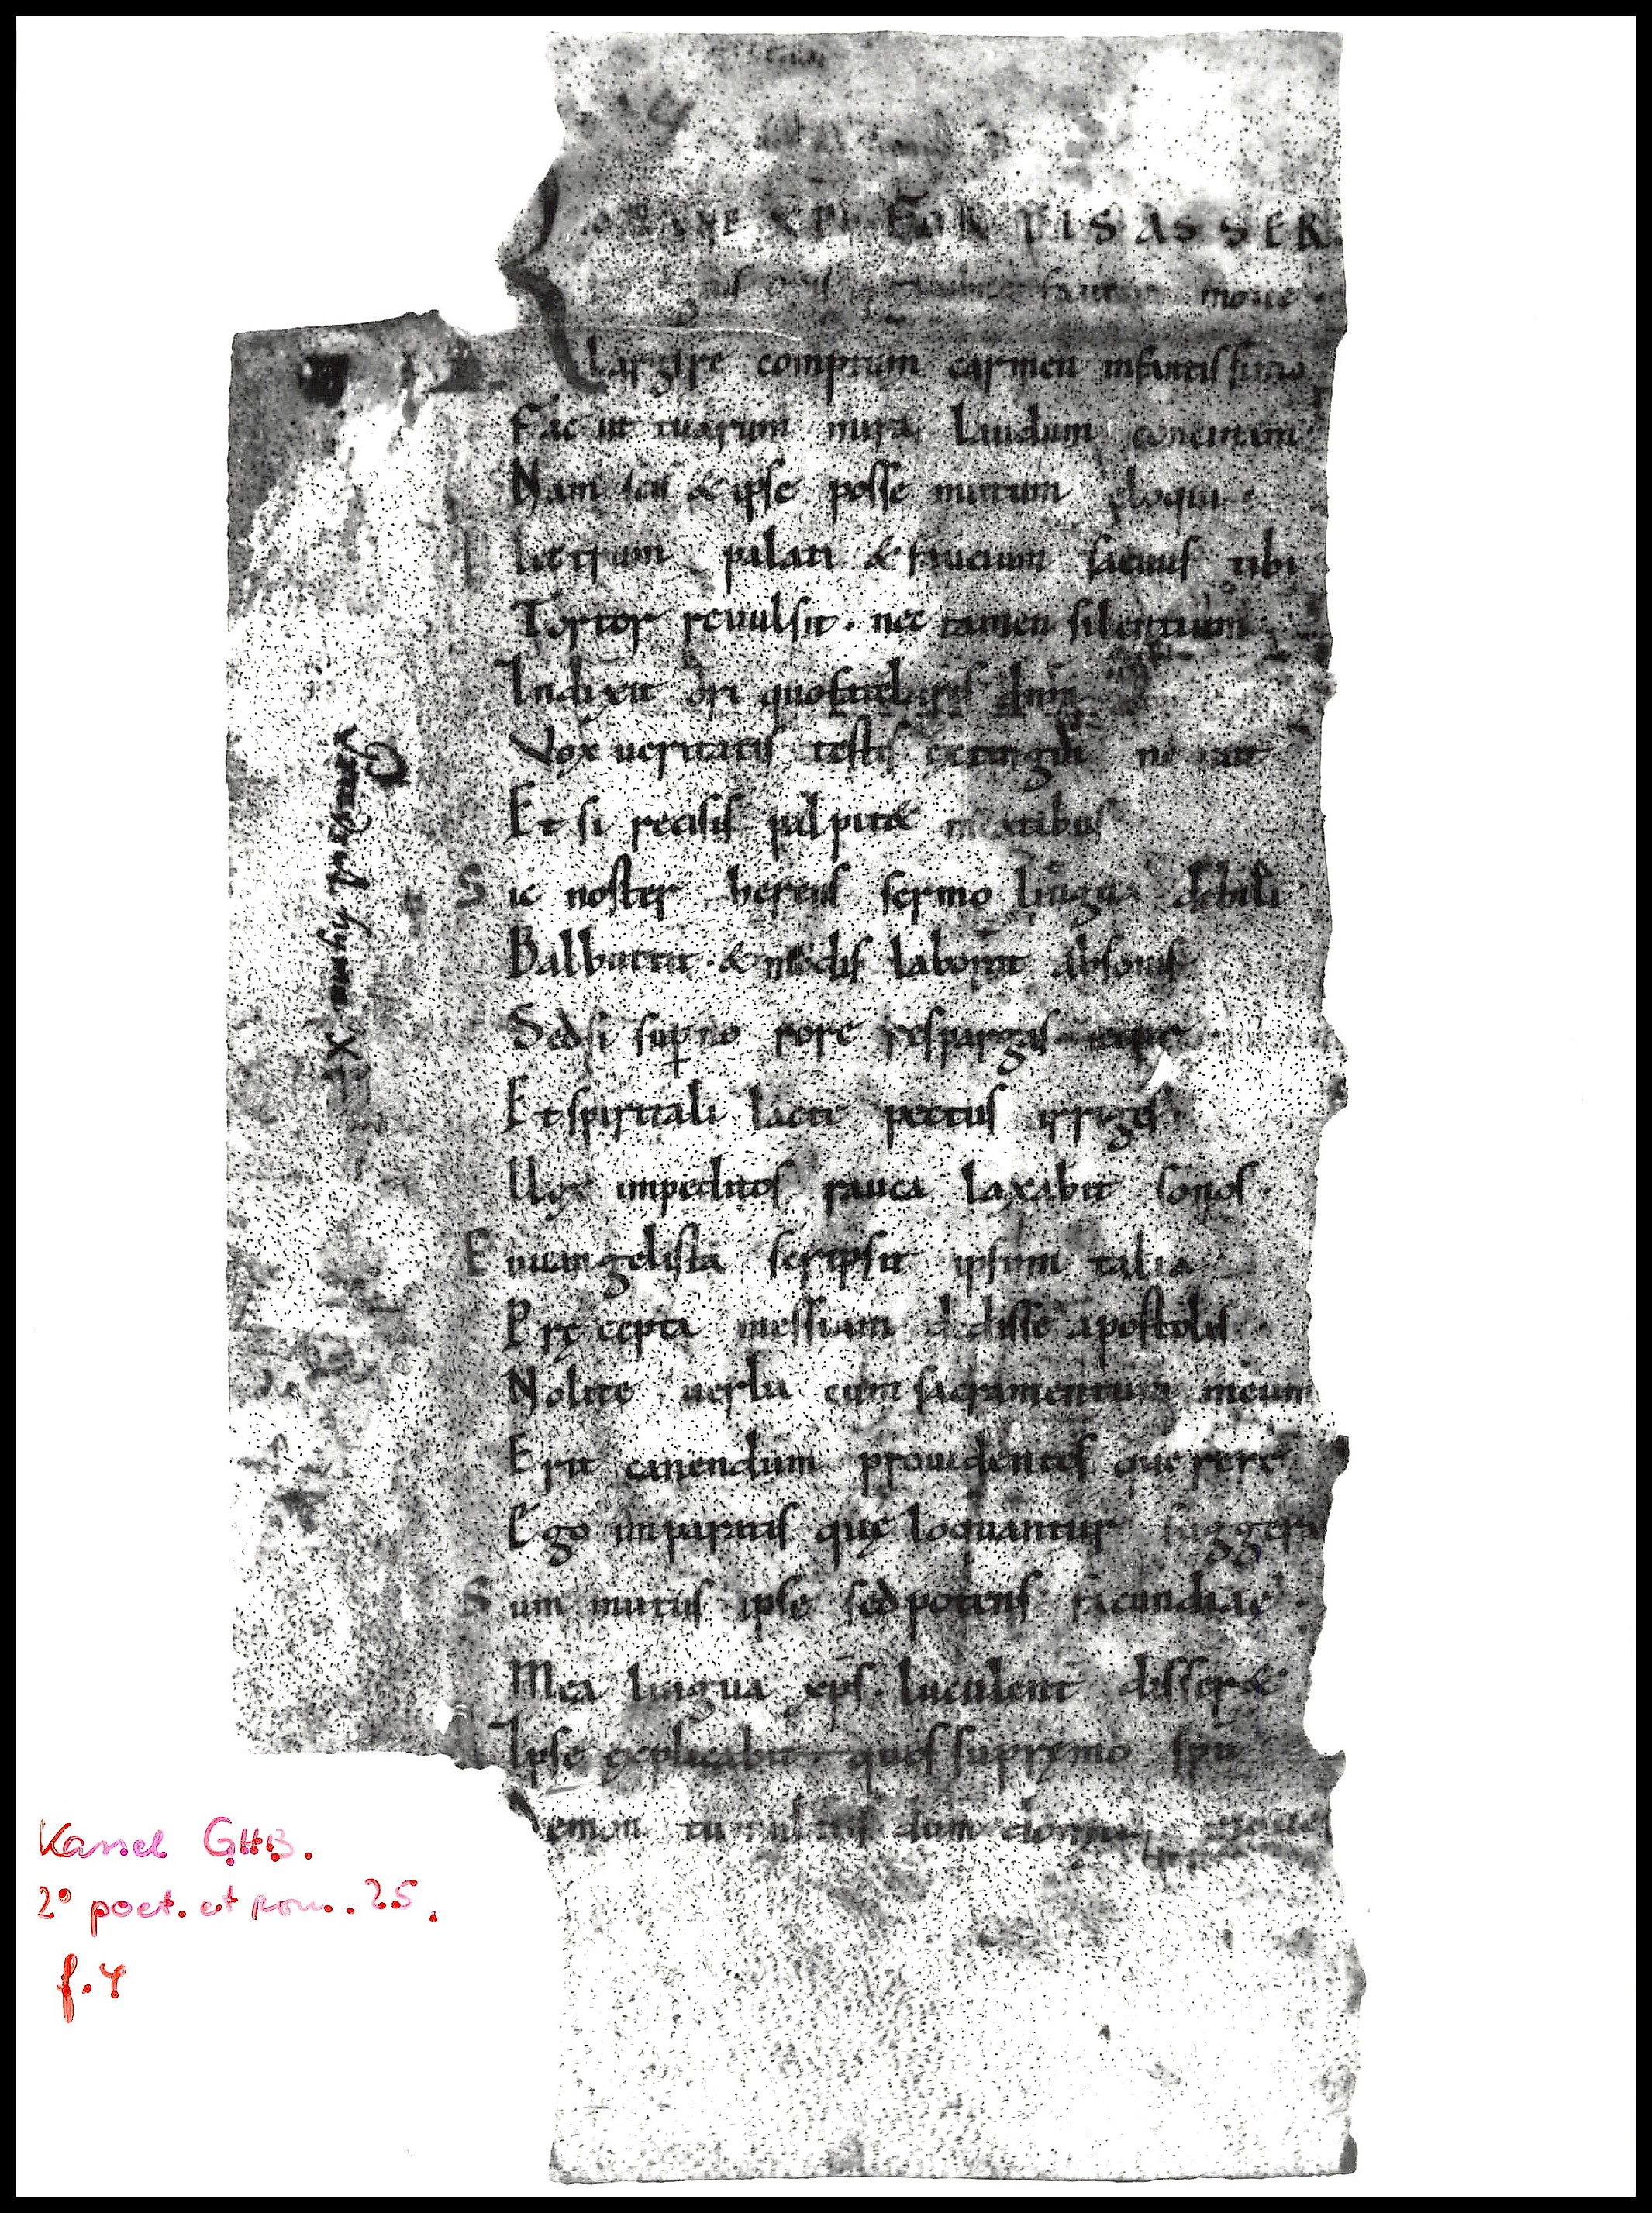 ROMANE XPI FORTIS ASSER
fautor moue
Largire comptum carmen infantissimo
Fac ut tuarum mira laudum concinam
Nam scis & ipse posse mutum eloqui.
lectrum palati & faucium sæuus tibi
Tortor reuulsit. nec tamen silentium
Indixit ori quo fatebaris dnm
Vox ueritatis testis extingui ne uit
Et si recisis palpit& meatibus
Sic noster herens sermo lingua debili
Balbuttit. & modis laborat absonis
Sed si supno rore respargas iecur
Et spiritali lacte pectus irriges.
Uox impeditos rauca laxabit sonos.
Euuangelista scripsit ipsum talia
Pręcepta messiam dedisse apostolis.
Nolite uerba cum sacramentum meum
Erit canendum prouidentes querere
Ego imparatis quę loquantur suggera
Sum mutus ipse sed potens facundiae.
Mea lingua xps. luculente disser&
Ipse explicabit quos supręmo spu
emon tumultus dum dom
Prudent. hymn. X
Kassel GHB.
2° poet. et rom. 25.
f. 4